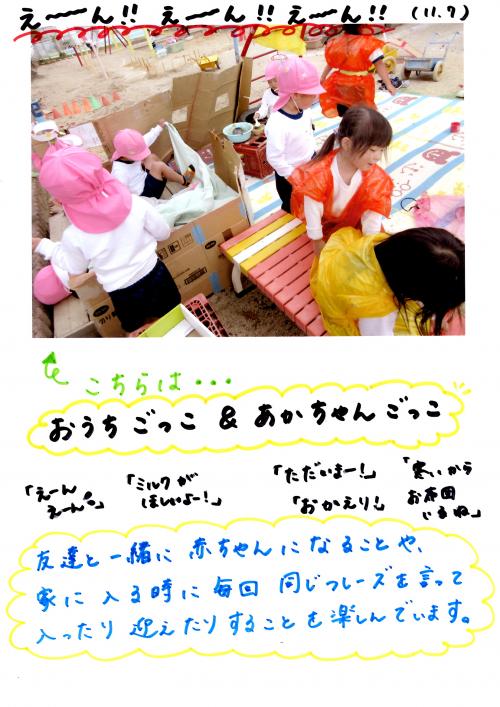 え〜ん!! え〜ん!! え〜ん!! (11.7)
こちらは・・・
おうちごっこ & あかちゃんごっこ
「えーんえーん。」
「ミルクがほしいよー!」
「ただいまー!」
「おかえり!」
「寒いからお布団いるね」
友達と一緒に赤ちゃんになることや、
家に入る時に毎回同じフレーズを言って
入ったり迎えたりすることを楽しんでいます。